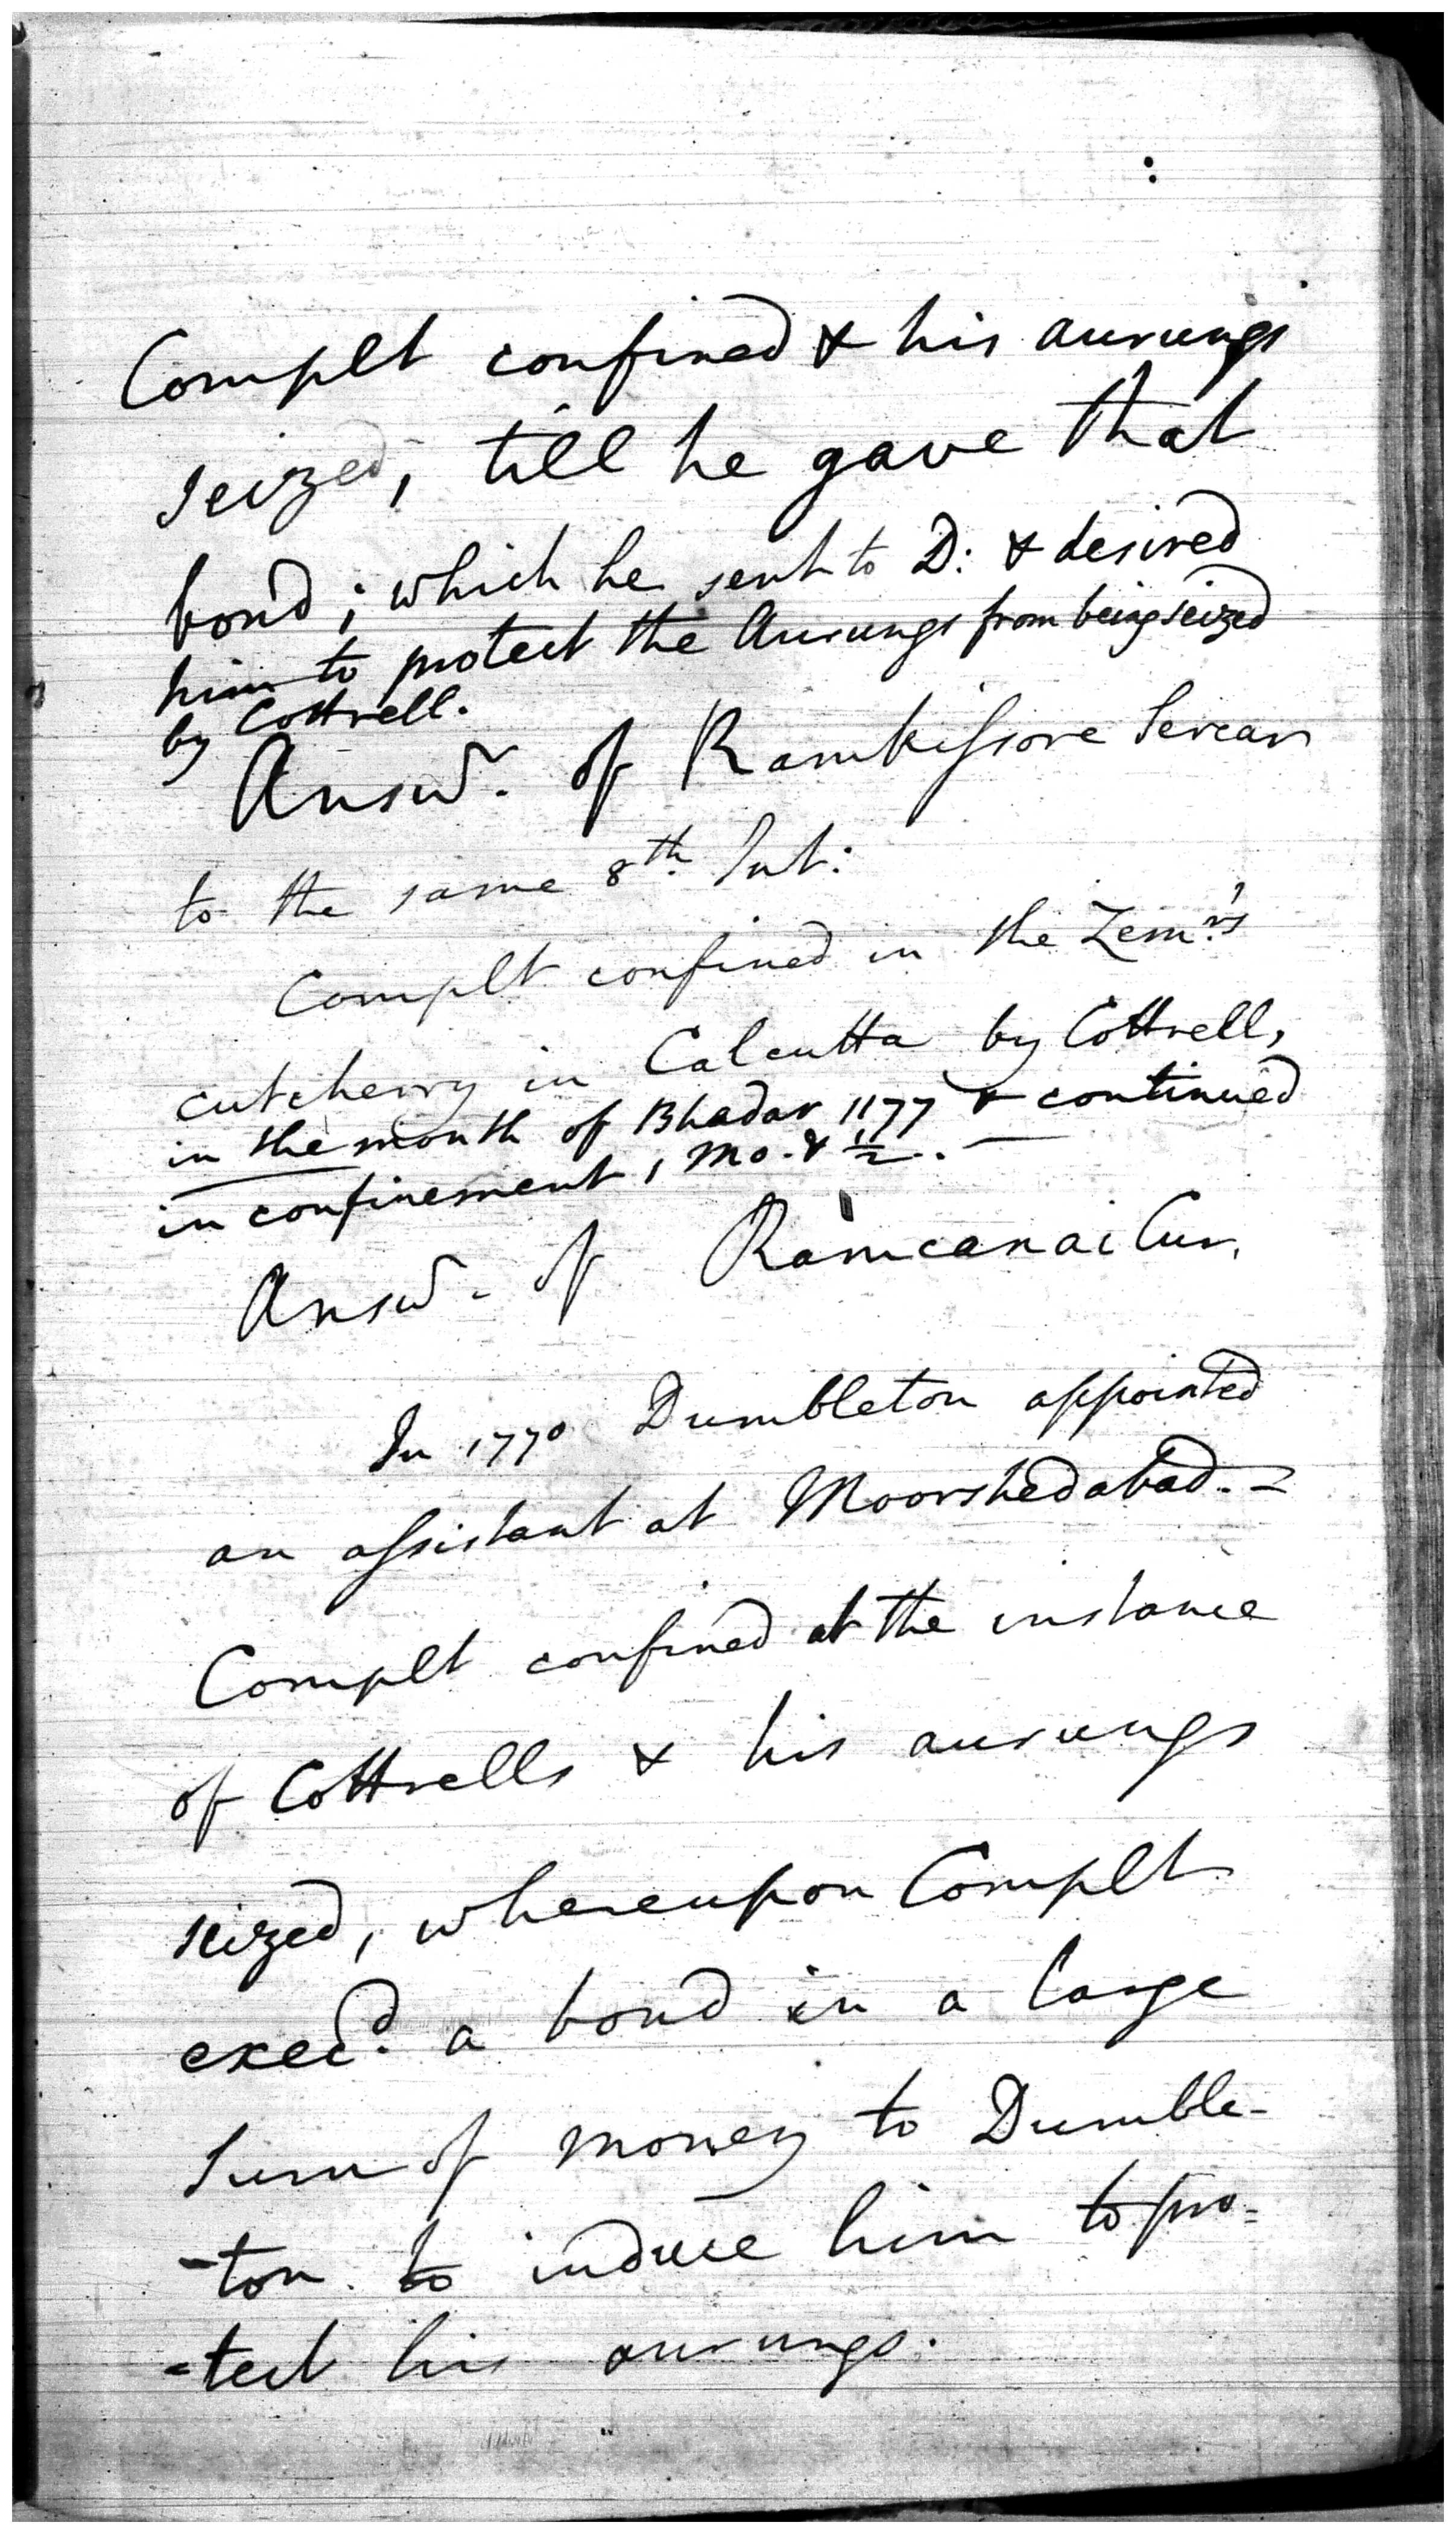 Complt confined & his aurungs
seized, till he gave that
bond; which he sent to D: & desired
him to protect the Aurungs from being seized
by Cottrell.
Answr. of Ramkissore Sercar
to the same 8th. Int:
Complt confined in the Zemr's
cutcherry in Calcutta by Cottrell,
in the month of Bhadar 1177 & continued
in confinement 1 Mo. & 1/2.
Answ. of Ramcanai Cur.
In 1770 Dumbleton appointed
an assistant at Moorshedabad. -
Complt confined at the instance
of Cottrells & his aurungs
seized, whereupon Complt
execd. a bond in a large
Sum of money to Dumble-
-ton to induce him to pro=
=tect his aurungs.